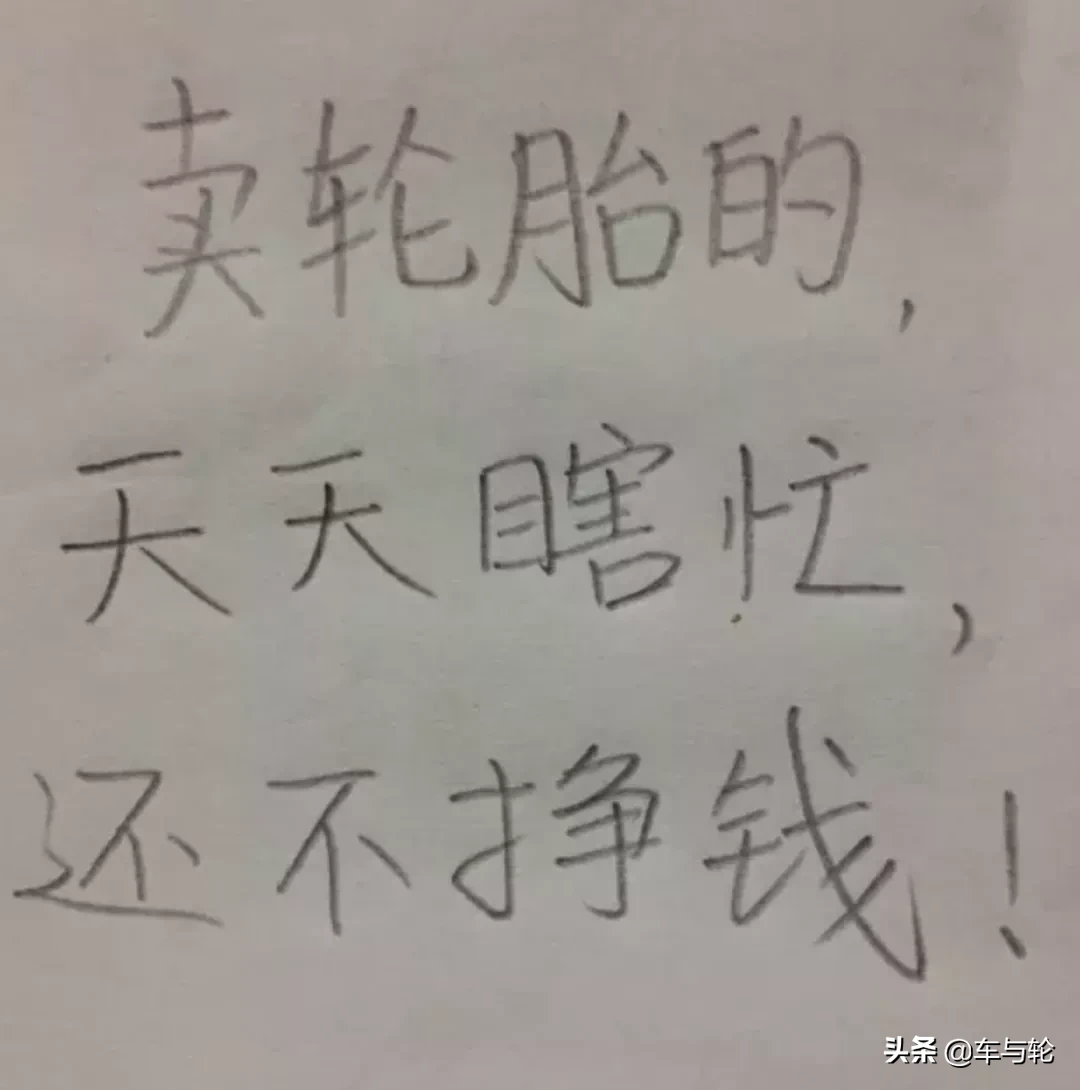 卖轮胎的,
天天瞎忙,
还不挣钱!
头条 @车与轮